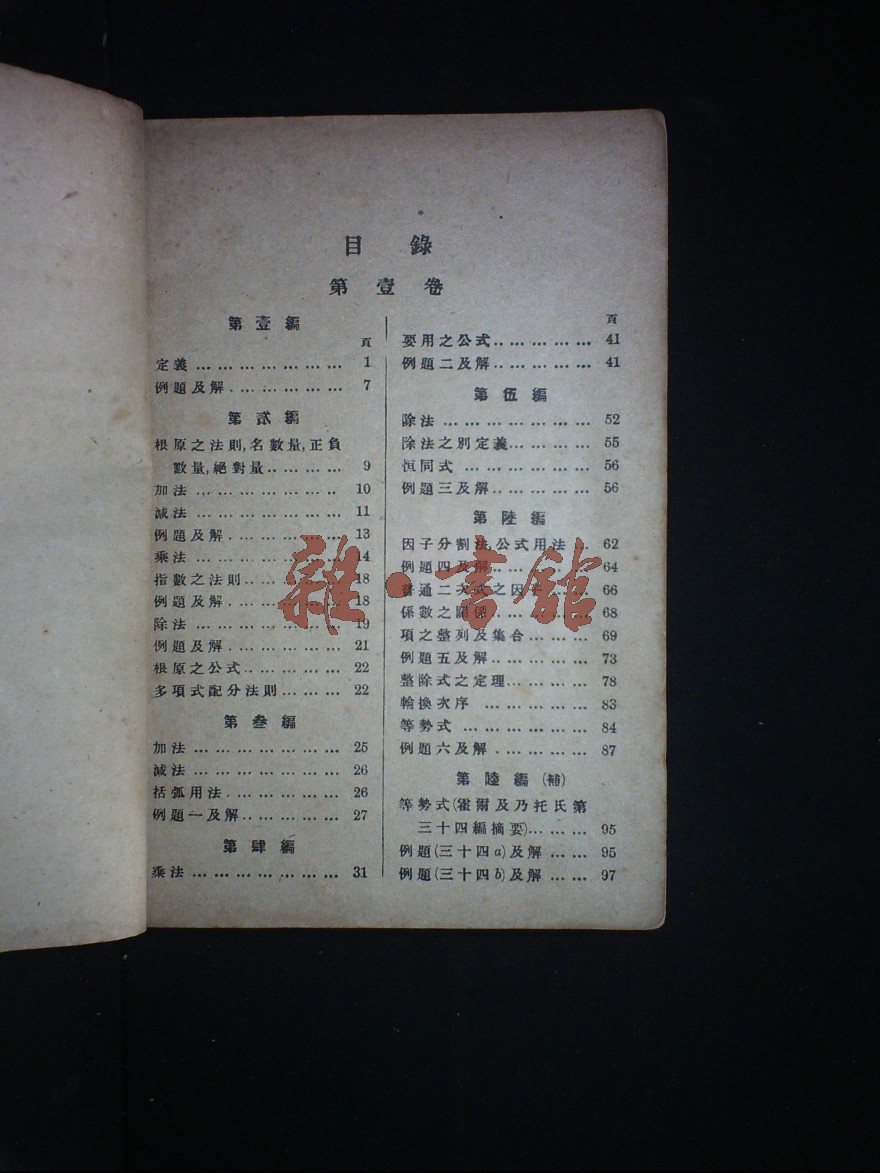 目錄
第壹卷
第壹編
頁
定義 … … … … … … … 1
例題及解 . … … … … … 7
第貳編
根原之法則,名數量,正負
數量,絕對量 … … … … 9
加法 … … … … … … … 10
減法 … … … … … … … 11
例題及解 . … … … … … 13
乘法 … … … … … … … 14
指數之法則 … … … … … 18
例題及解 . … … … … … 18
除法 … … … … … … … 19
例題及解 . … … … … … 21
根原之公式 … … … … … 22
多項式配分法則 … … … 22
第叁編
加法 … … … … … … … 25
減法 … … … … … … … 26
括弧用法 . … … … … … 26
例題一及解 … … … … … 27
第肆編
乘法 … … … … … … … 31
頁
要用之公式 … … … … … 41
例題二及解 … … … … … 41
第伍編
除法 … … … … … … … 52
除法之別定義 … … … … 55
恒同式 … … … … … … 56
例題三及解 … … … … … 56
第陸編
因子分割法,公式用法 … 62
例題四及解 … … … … … 64
普通二次式之因子 … … 66
係數之關係 … … … … … 68
項之整列及集合 … … … 69
例題五及解 … … … … … 73
整除式之定理 … … … … 78
輪換次序 … … … … … 83
等勢式 … … … … … … 84
例題六及解 . … … … … 87
第陸編(補)
等勢式(霍爾及乃托氏第
三十四編摘要) … … … 95
例題(三十四a)及解 … … 95
例題(三十四b)及解 … … 97
雜·書館